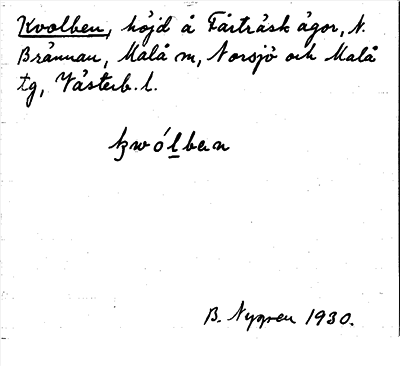 Kvolben, höjd å Fårträsk ägor, N.
Brännan, Malå m, Norsjö och Malå
tg, Västerb. l.
kwólben
B. Nygren 1930.